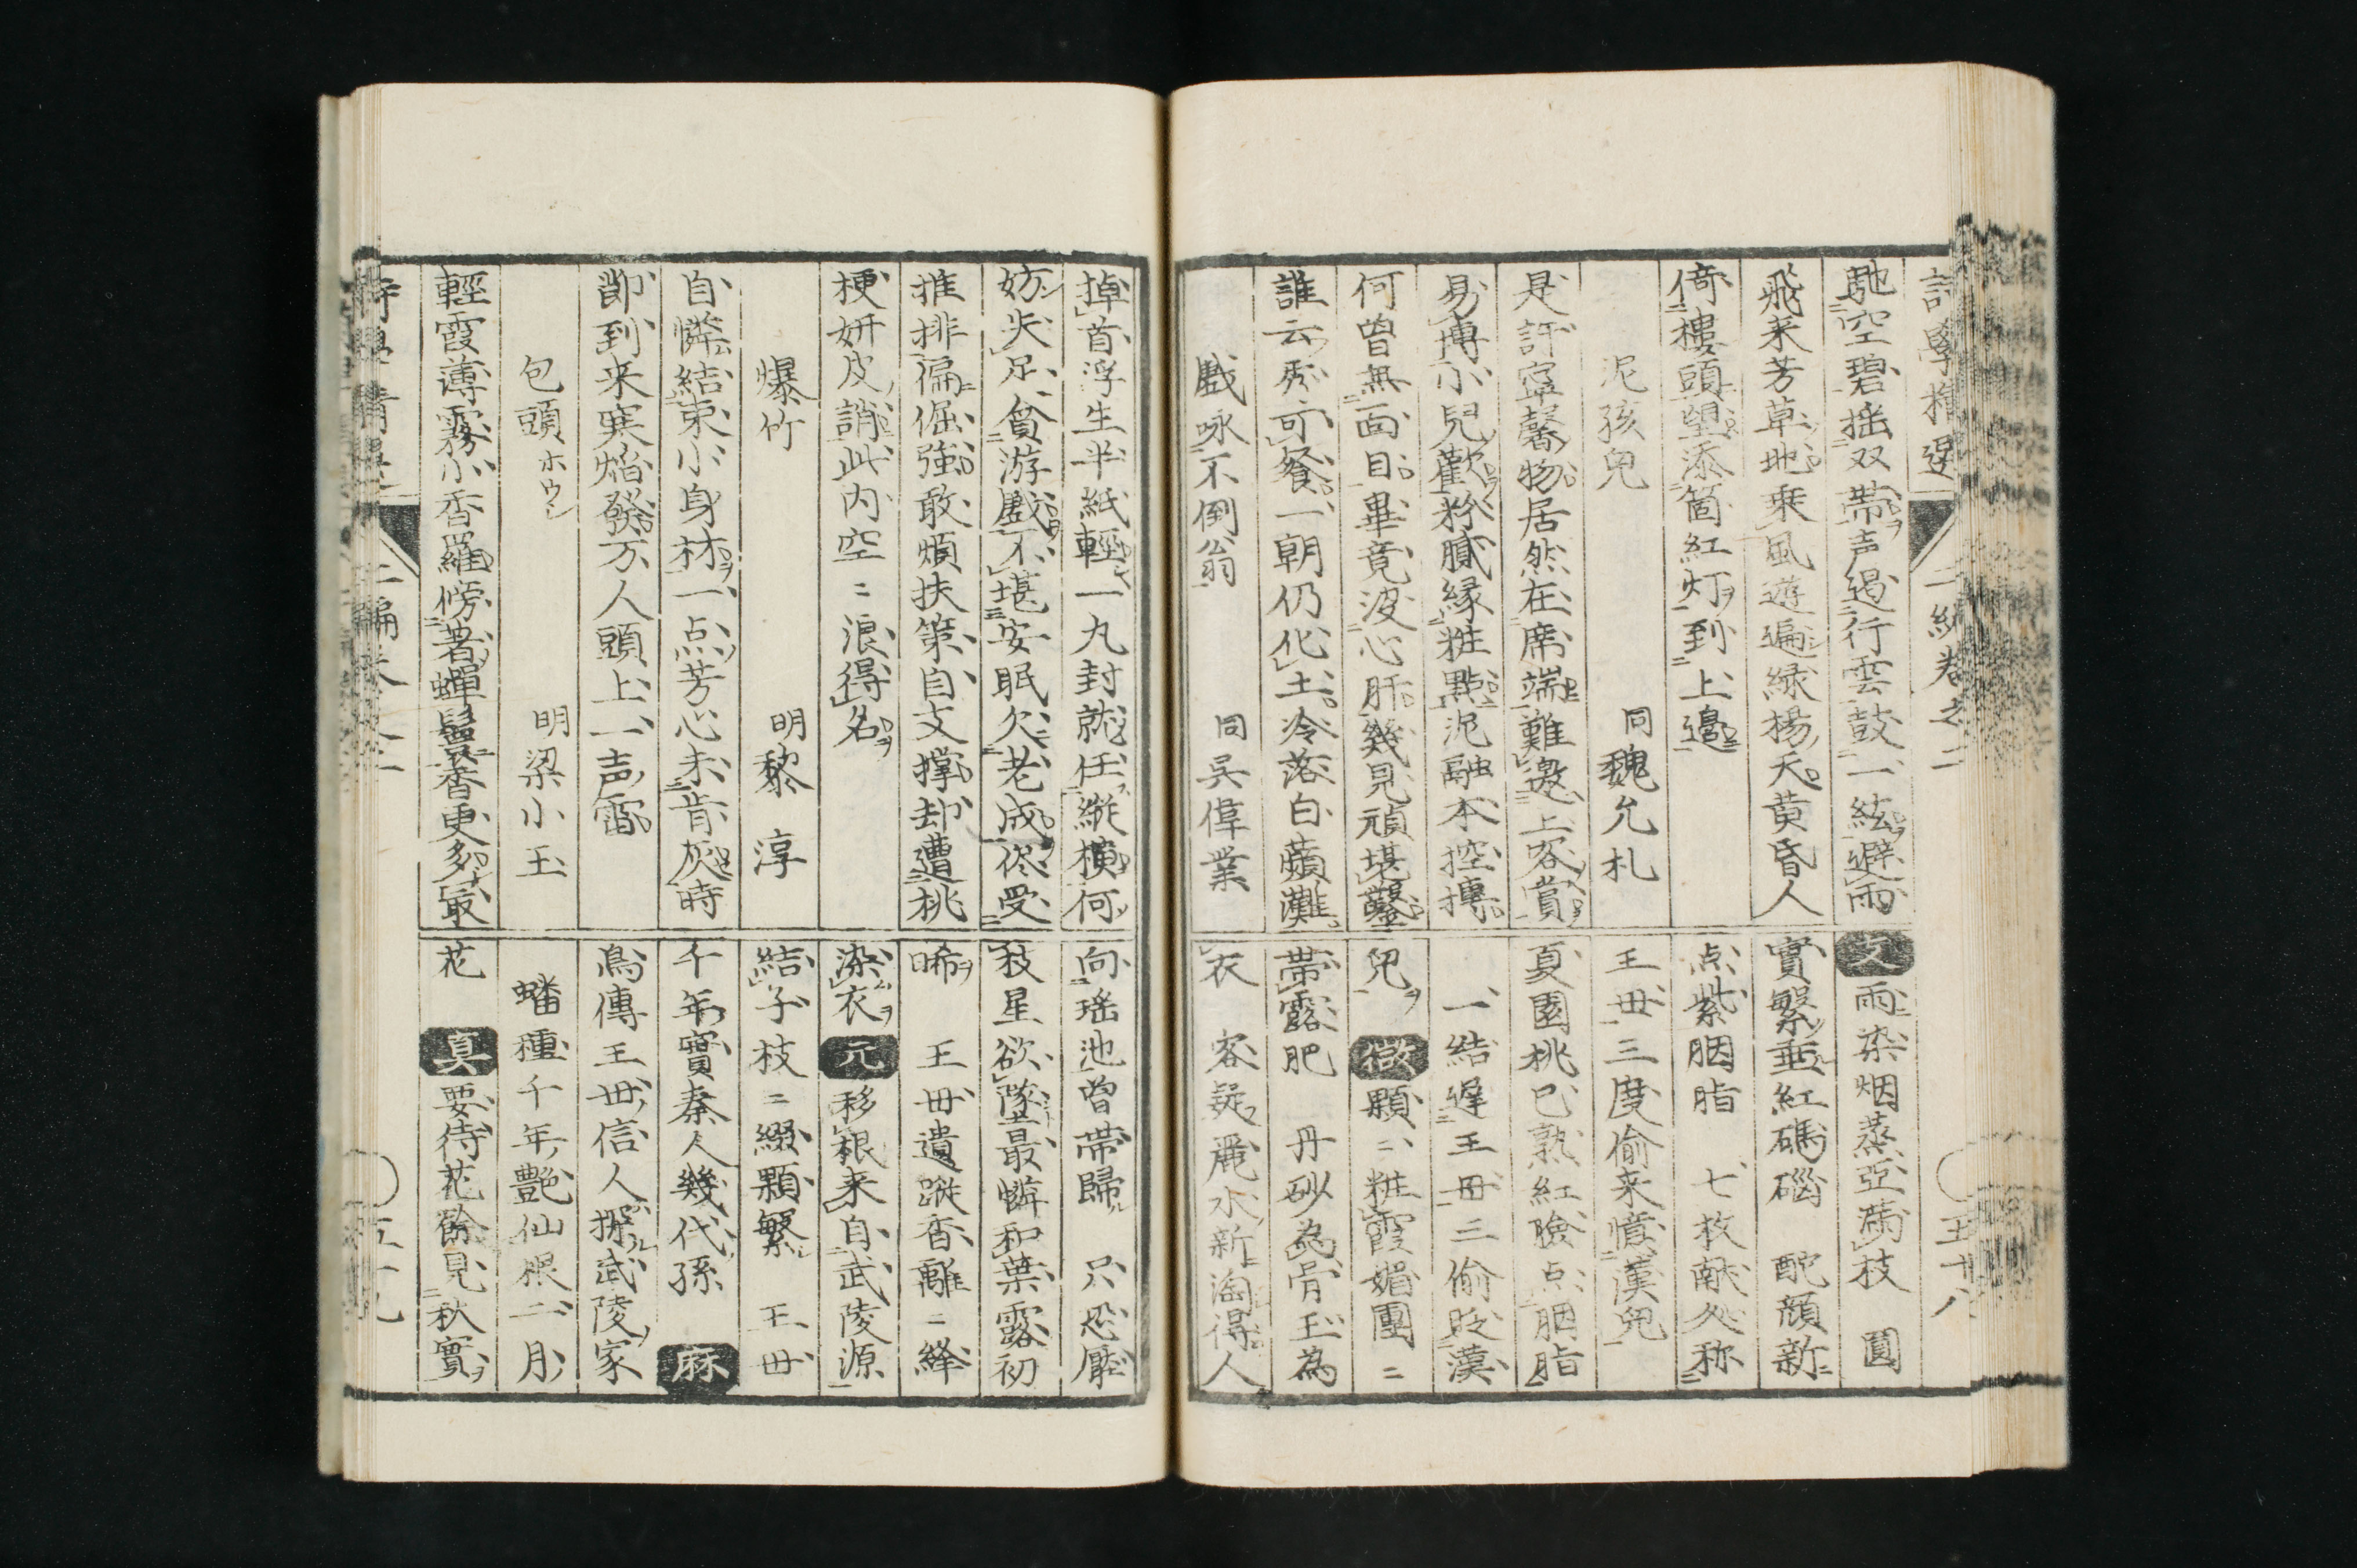 詩學精選
二編卷之二
五十八
馳空碧搖双帶声遏行雲鼓一絃避雨
飛来芳草地乗風遊遍緑楊天黄昏人
倚樓頭望添箇紅灯到上邉
泥孩兒
同 魏允札
是許寧馨物居然在席端難邀上客賞
易博小兒歡粉膩縁粧點泥融本控摶
何曽無面目畢竟沒心肝幾見頑堪鑿
誰云秀可餐一朝仍化土冷落白蘋灘
戯咏不倒翁
同 呉偉業
文 雨染烟蒸亞萬枝 圓
實繁垂紅碼碯 酡顔新
点紫胭脂 七枚献处称
王毋三度偷来憶漢兒
夏園桃已熟紅臉点胭脂
一結遲王毋三偷貶漢
兒 顆〻粧霞媚團〻
帶露肥 丹砂為骨玉為
衣 客疑麗水新淘得人
掉首浮生半紙輕一丸封就任縱横何
妨失足貪游戯不堪安眠欠老成侭受
推排偏倔強敢煩扶策自支撑却遭桃
梗妍皮誚此内空〻浪得名
爆竹
明 黎淳
自憐結束小身材一点芳心未肯灰時
節到来寒焔發万人頭上一声雷
包頭ホウシ
明 梁小玉
輕霞薄霧小香羅傍著蟬鬢香更多最
向瑶池曽帶歸 只恐壓
枝星欲墜最憐和葉露初
晞 王毋遺蹤香離〻絳
染衣 元 移根来自武陵源
結子枝〻綴顆繁 王毋
千年實秦人幾代孫 麻
鳥傳王毋信人探武陵家
蟠種千年艶仙根二月
花 真 要待花餘見秋實
二編卷之二
五十九